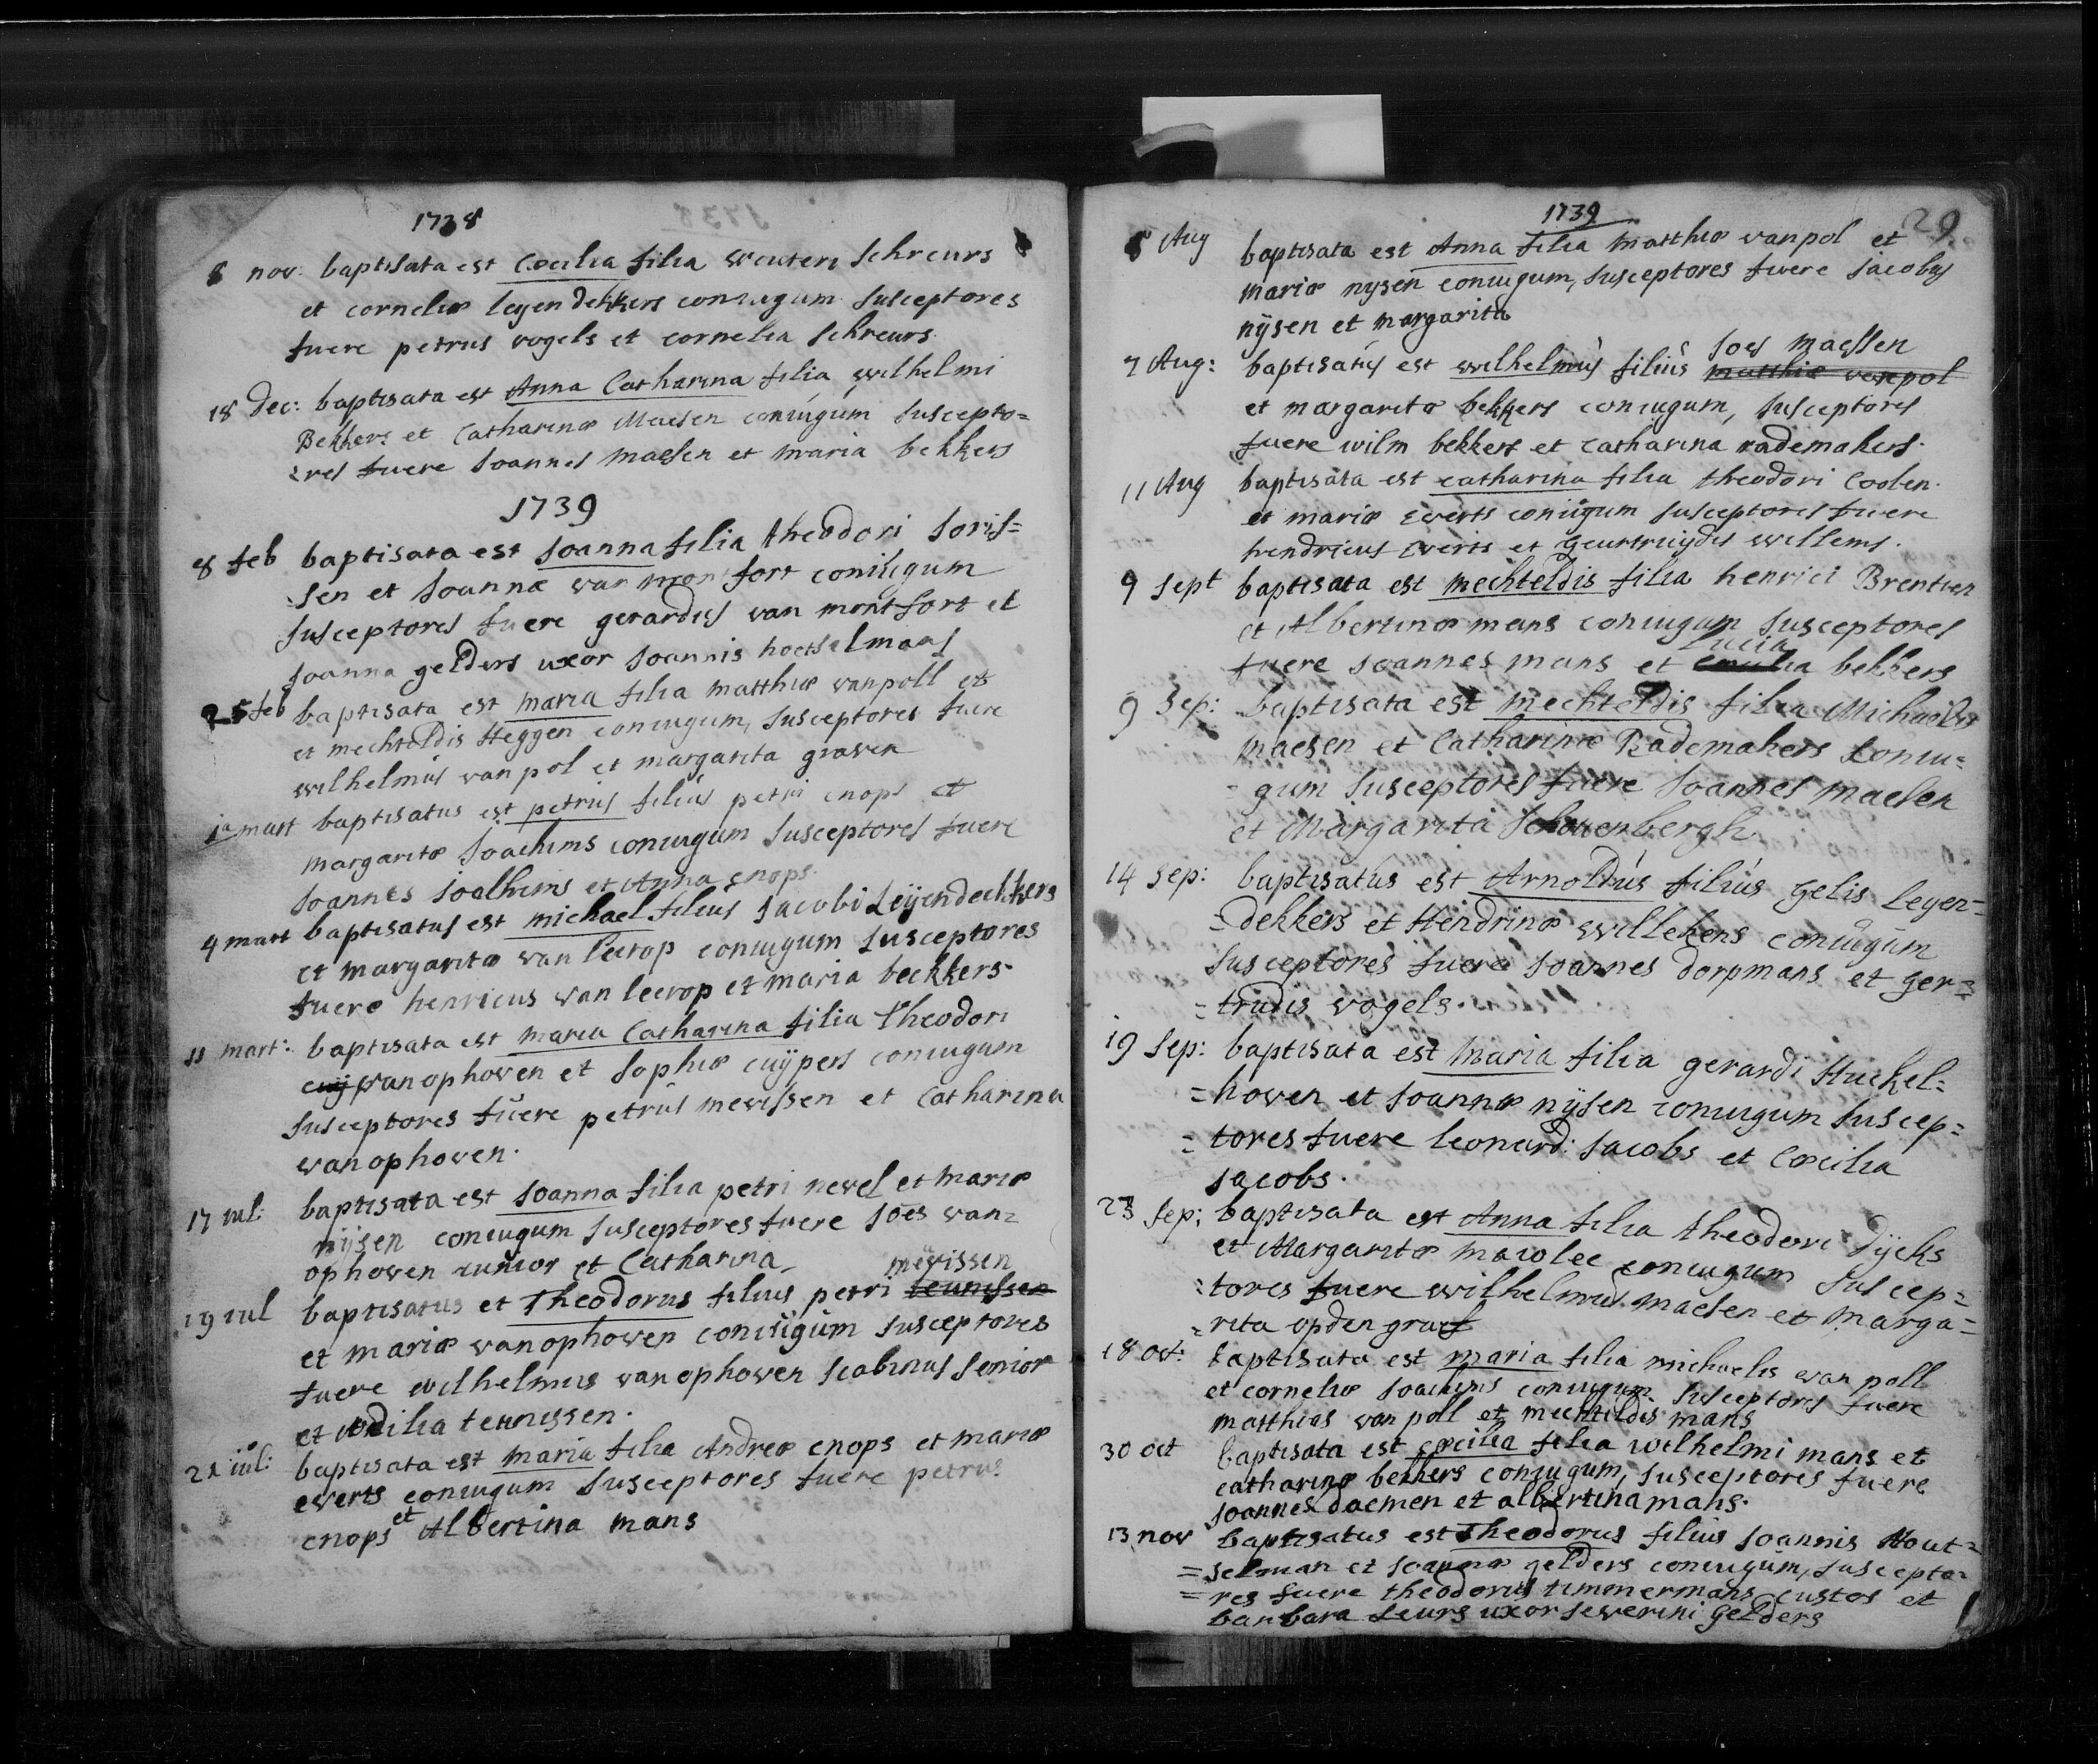 1738
8 nov: baptisata est Cæcilia filia wouteri Schreurs
et corneliæ leyendekkers coniugum susceptores
fuere petrus vogels et cornelia Schreurs
18 Dec: baptisata est Anna Catharina filia wilhelmi
Bekkers et Catharinæ Maesen coniugum suscepto=
=res fuere Joannes maesen et maria bekkers
1739
8 feb baptisata est Joanna filia theodori Joris=
sen et Joannæ van montfort coniugum
susceptores fuere gerardus van montfort et
Joanna gelders uxor Joannis hoetselmans
25 feb baptisata est maria filia matthiæ vanpoll et
et mechteldis Heggen coniugum, susceptores fuere
wilhelmus van pol et margarita graven
1a mart baptisatus est petrus filius petri cnops et
margaritæ Joachims coniugum susceptores fuere
Joannes Joachims et Anna cnops.
4 mart baptisatus est michael filius Jacobi Leijendeckkers
et margaritæ van leerop coniugum susceptores
fuere henricus van leerop et maria beckkers
11 mart: baptisata est maria Catharina filia theodori
cuij vanophoven et Sophiæ cuijpers coniugum
susceptores fuere petrus mewissen et Catharina
vanophoven.
17 iul: baptisata est Joanna filia petri nevel et mariæ
nijsen coniugum susceptores fuere Joes van=
ophoven iunior et Catharina
mewissen
19 iul baptisatus et Theodorus filius petri teunissen
et mariæ vanophoven coniugum susceptores
fuere wilhelmus vanophoven scabinus senior
et odilia teunissen.
21 iul: baptisata est maria filia Andreæ cnops et mariæ
everts coniugum susceptores fuere petrus
cnops et Albertina mans
1739
29
5 Aug baptisata est Anna filia matthiæ vanpol et
mariæ nysen coniugum, susceptores fuere Jacobus
nijsen et margarita
Joes maessen
7 Aug: baptisatus est wilhelmus filius matthiæ vanpol
et margaritæ bekkers coniugum, susceptores
fuere wilm bekkers et catharina rademakers.
11 Aug baptisata est catharina filia theodori Coolen
et mariæ Everts coniugum susceptores fuere
hendricus Everts et geurtruydis willems.
9 sept baptisata est mechteldis filia henrici Brentien
et Albertinæ mans coniugum susceptores
lucia
fuere Joannes mans et bekkers
9 Sep: baptisata est mechteldis filia Michaelis
maesen et Catharinæ Rademakers coniu=
=gum susceptores fuere Joannes maesen
et Margarita Schouenbergh
14 Sep: baptisatus est Arnoldus filius gelis leyen=
=dekkers et Hendrinæ willekens coniugum
susceptores fuere Joannes dorpmans et ger=
=trudis vogels.
19 Sep: baptisata est Maria filia gerardi Huckel=
=hoven et Joannæ nijsen coniugum suscep=
=tores fuere leonard: Jacobs et Cæcilia
Jacobs.
23 Sep: baptisata est Anna filia theodori Dijcks
et Margaritæ macolee coniugum suscep=
=tores fuere wilhelmus maesen et marga=
=rita opden graef
18 oct: baptisata est maria filia michaelis van poll
et corneliæ Joachims coniugum susceptores fuere
matthias van poll et mechtildis mans
30 oct baptisata est cæcilia filia wilhelmi mans et
catharinæ bekkers coniugum, susceptores fuere
Joannes daemen et albertina mans.
13 nov baptisatus est Theodorus filius Joannis Hout=
=selman et Joannæ gelders coniugum, suscepto=
=res fuere theodorus timmermans custos et
barbara leurs uxor severini gelders